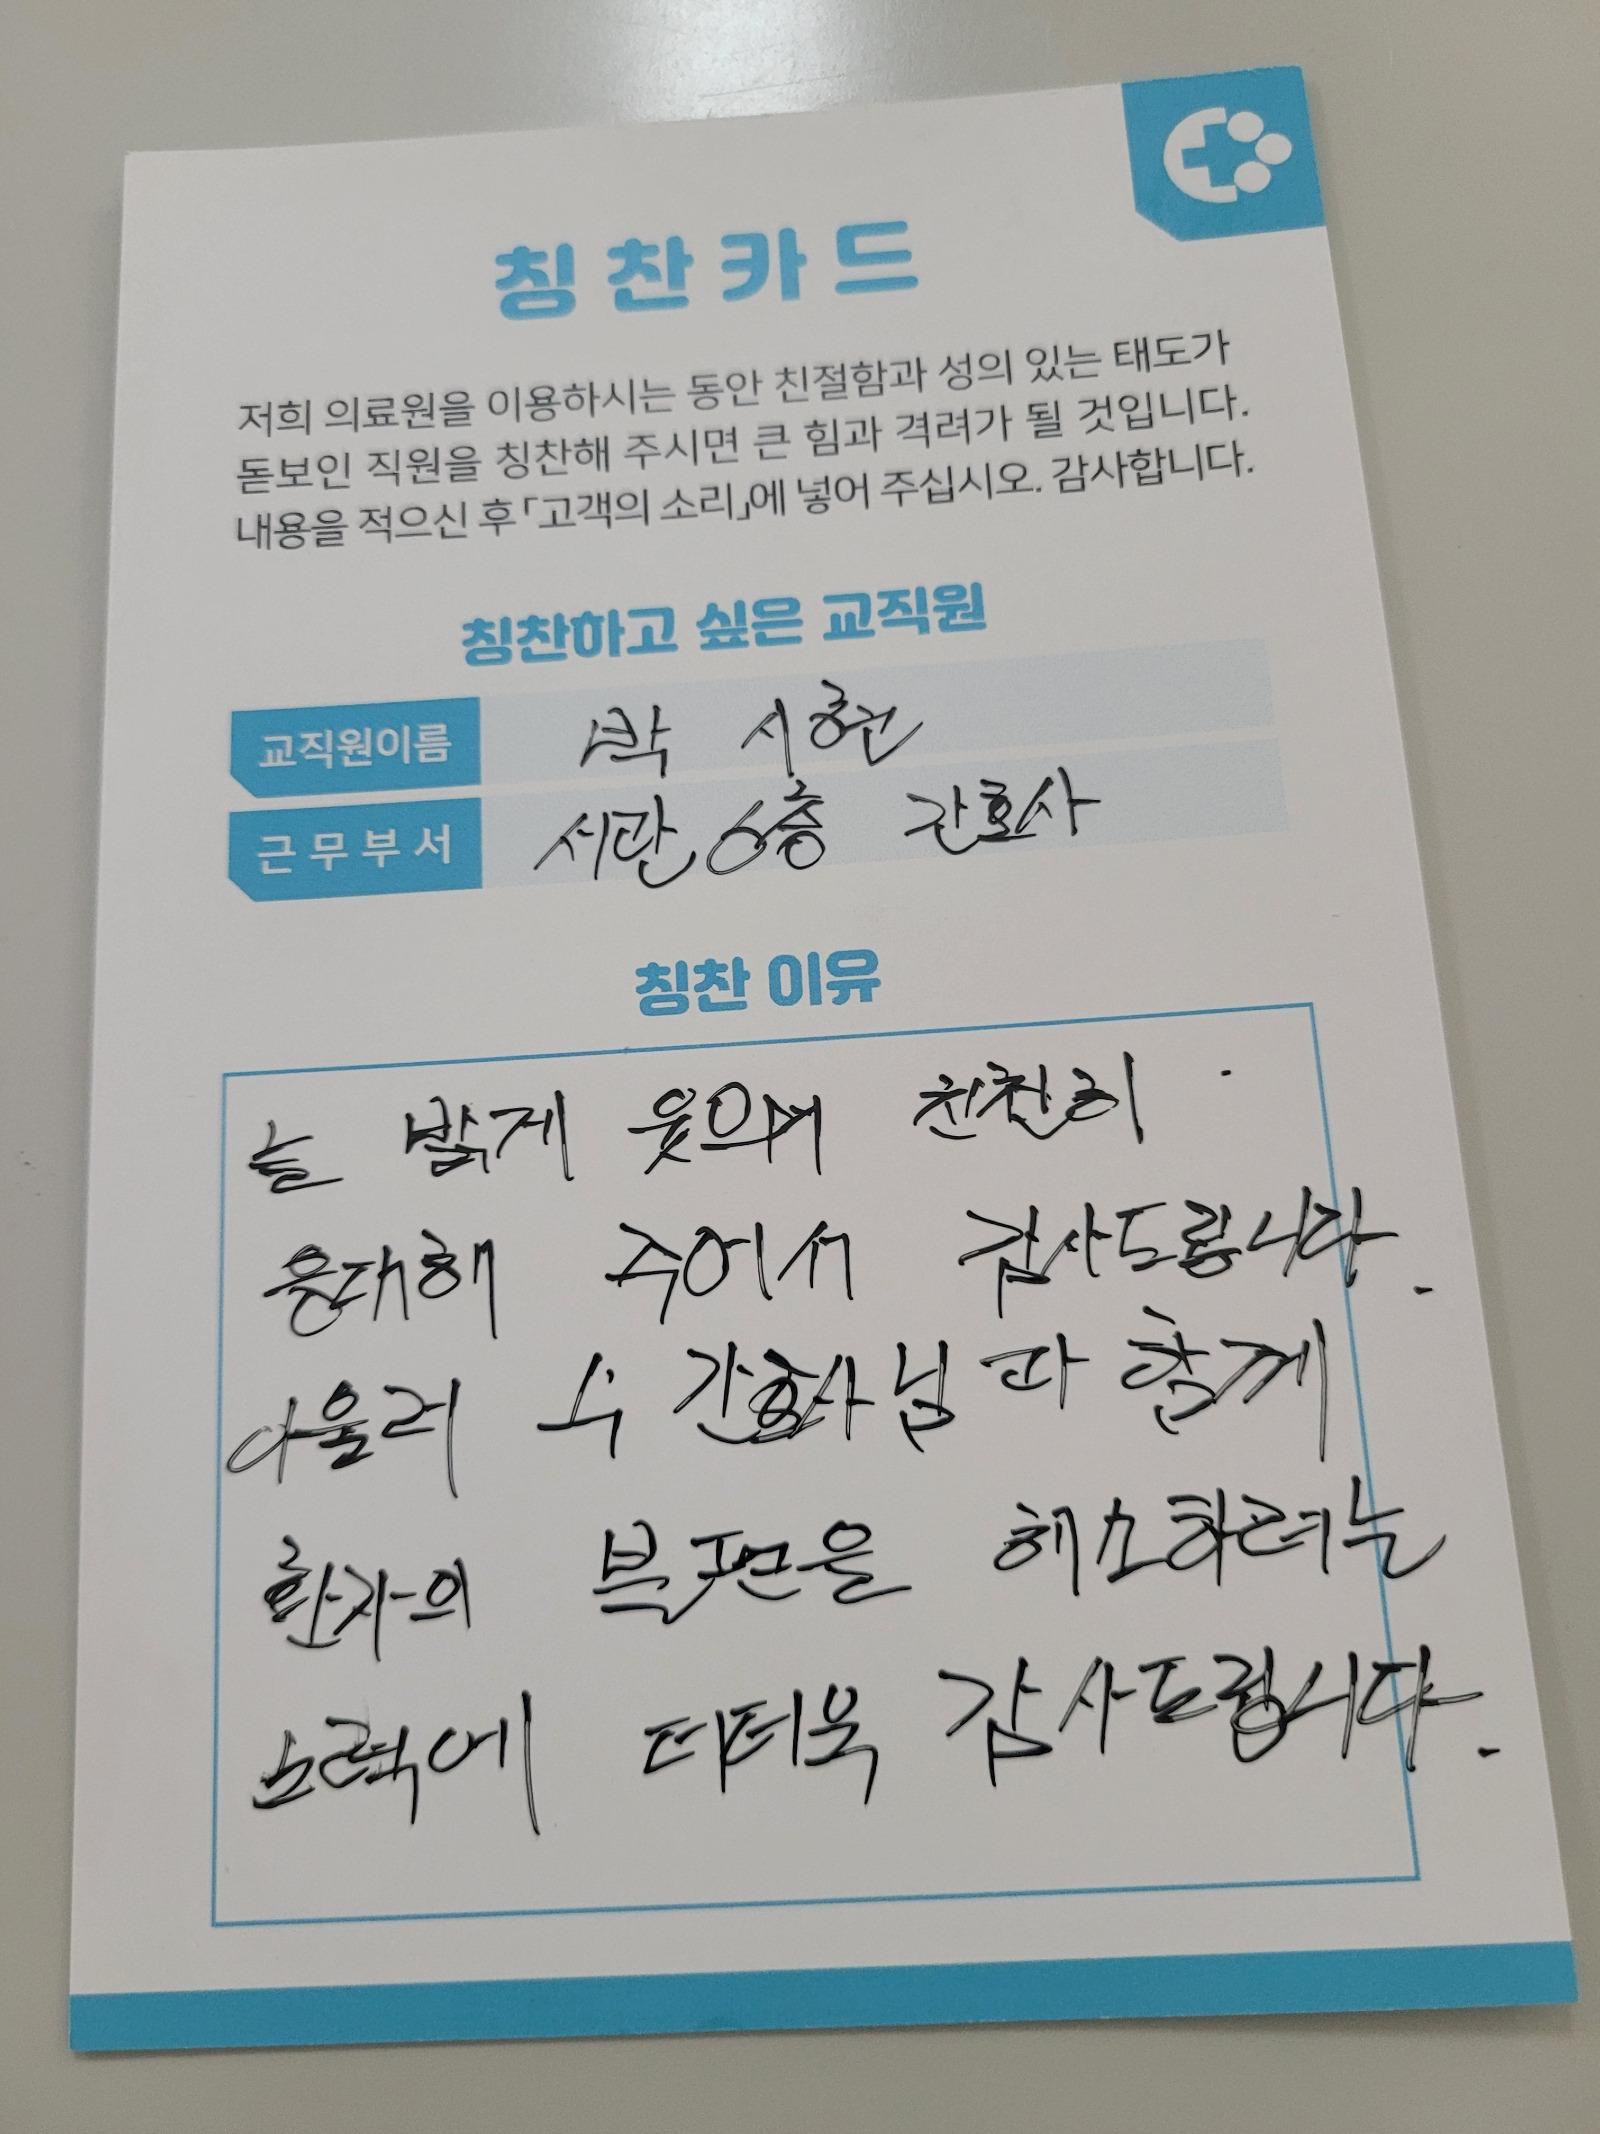 칭찬카드
저희 의료원을 이용하시는 동안 친절함과 성의 있는 태도가
돋보인 직원을 칭찬해 주시면 큰 힘과 격려가 될 것입니다.
내용을 적으신 후 「고객의 소리」에 넣어 주십시오. 감사합니다.
칭찬하고 싶은 교직원
교직원이름 박 시현
근무부서 서관 6층 간호사
칭찬 이유
늘 밝게 웃으며 친절히
응대해 주어서 감사드립니다.
아울러 수 간호사님과 함께
환자의 불편을 해소하려는
노력에 더더욱 감사드립니다.